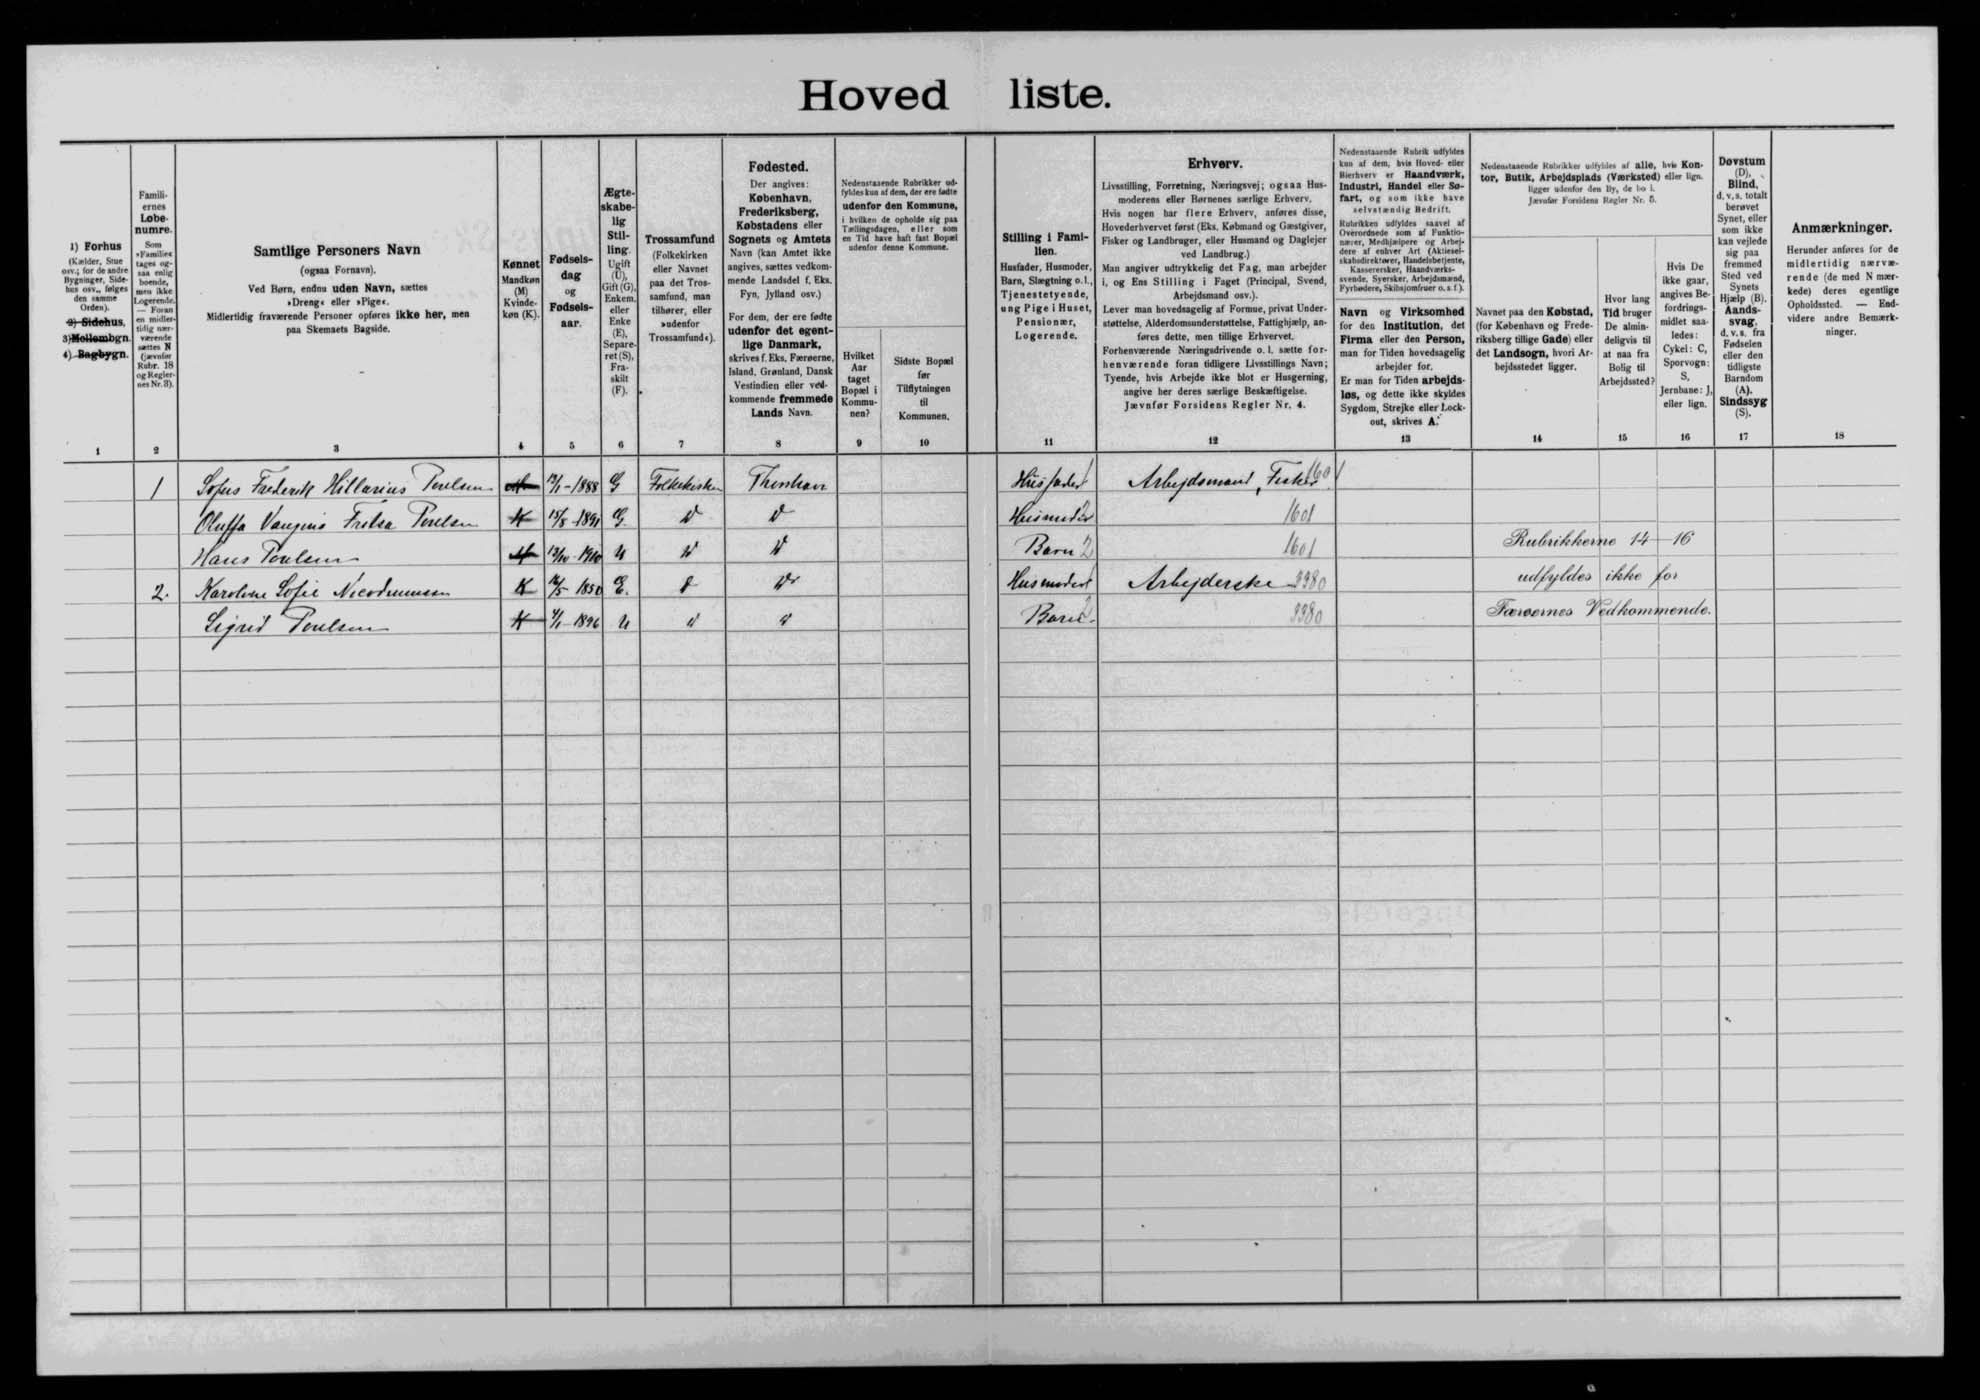 Hoved liste.
1) Forhus
(Kælder, Stue
osv.; for de andre
Bygninger, Side-
hus osv., følges
den samme
Orden).
2) Sidehus,
3) Mellembgn.
4) Bagbygn.
Famili-
ernes
Løbe-
numre.
Som
»Familie«
tages og-
saa enlig
boende,
men ikke
Logerende.
— Foran
en midler-
tidig nær-
værende
sættes N
(jævnfør
Rubr. 18
og Regler-
nes Nr. 3).
Samtlige Personers Navn
(ogsaa Fornavn).
Ved Børn, endnu uden Navn, sættes
»Dreng« eller »Pige«.
Midlertidig fraværende Personer opføres ikke her, men
paa Skemaets Bagside.
Kønnet
Mandkøn
(M)
Kvinde-
køn (K).
Fødsels-
dag
og
Fødsels-
aar.
Ægte-
skabe-
lig
Stil-
ling.
Ugift
(U),
Gift (G),
Enkem.
eller
Enke
(E),
Separe-
ret (S),
Fra-
skilt
(F).
Trossamfund
(Folkekirken
eller Navnet
paa det Tros-
samfund, man
tilhører, eller
»udenfor
Trossamfund«).
Fødested.
Der angives:
København,
Frederiksberg,
Købstadens eller
Sognets og Amtets
Navn (kan Amtet ikke
angives, sættes vedkom-
mende Landsdel f. Eks.
Fyn, Jylland osv.)
For dem, der ere fødte
udenfor det egent-
lige Danmark,
skrives f. Eks. Færøerne,
Island, Grønland, Dansk
Vestindien eller ved-
kommende fremmede
Lands Navn.
Nedenstaaende Rubrikker ud-
fyldes kun af dem, der ere fødte
udenfor den Kommune,
i hvilken de opholde sig paa
Tællingsdagen, eller som
en Tid have haft fast Bopæl
udenfor denne Kommune.
Hvilket
Aar
taget
Bopæl i
Kommu-
nen?
Sidste Bopæl
før
Tilflytningen
til
Kommunen.
Stilling i Fami-
lien.
Husfader, Husmoder,
Barn, Slægtning o.l.,
Tjenestetyende,
ung Pige i Huset,
Pensionær,
Logerende.
Erhverv.
Livsstilling, Forretning, Næringsvej; ogsaa Hus-
moderens eller Børnenes særlige Erhverv.
Hvis nogen har flere Erhverv, anføres disse,
Hovederhvervet først (Eks. Købmand og Gæstgiver,
Fisker og Landbruger, eller Husmand og Daglejer
ved Landbrug.)
Man angiver udtrykkelig det Fag, man arbejder
i, og Ens Stilling i Faget (Principal, Svend,
Arbejdsmand osv.).
Lever man hovedsagelig af Formue, privat Under-
støttelse, Alderdomsunderstøttelse, Fattighjælp, an-
føres dette, men tillige Erhvervet.
Forhenværende Næringsdrivende o. l. sætte for-
henværende foran tidligere Livsstillings Navn;
Tyende, hvis Arbejde ikke blot er Husgerning,
angive her deres særlige Beskæftigelse.
Jævnfør Forsidens Regler Nr. 4.
Nedenstaaende Rubrik udfyldes
kun af dem, hvis Hoved- eller
Bierhverv er Haandværk,
Industri, Handel eller Sø-
fart, og som ikke have
selvstændig Bedrift.
Rubrikken udfyldes saavel af
Overordnede som af Funktio-
nærer, Medhjælpere og Arbej-
dere af enhver Art (Aktiesel-
skabsdirektører, Handelsbetjente,
Kassererske, Haandværks-
svende, Syersker, Arbejdsmænd,
Fyrbødere, Skibsjomfruer o. s. f.).
Navn og Virksomhed
for den Institution, det
Firma eller den Person,
man for Tiden hovedsagelig
arbejder for.
Er man for Tiden arbejds-
løs, og dette ikke skyldes
Sygdom, Strejke eller Lock-
out, skrives A.
Nedenstaaende Rubrikker udfyldes af alle, hvis Kon-
tor, Butik, Arbejdsplads (Værksted) eller lign.
ligger udenfor den By, de bo i.
Jævnfør Forsidens Regler Nr. 5.
Navnet paa den Købstad,
(for København og Frede-
riksberg tillige Gade) eller
det Landsogn, hvori Ar-
bejdsstedet ligger.
Hvor lang
Tid bruger
De almin-
deligvis til
at naa fra
Bolig til
Arbejdssted?
Hvis De
ikke gaar,
angives Be-
fordrings-
midlet saa-
ledes:
Cykel: C,
Sporvogn:
S,
Jernbane: J,
eller lign.
Døvstum
(D),
Blind,
d. v. s. totalt
berøvet
Synet, eller
som ikke
kan vejlede
sig paa
fremmed
Sted ved
Synets
Hjælp (B).
Aands-
svag,
d. v. s. fra
Fødselen
eller den
tidligste
Barndom
(A).
Sindssyg
(S).
Anmærkninger.
Herunder anføres for de
midlertidig nærvæ-
rende (de med N mær-
kede) deres egentlige
Opholdssted. — End-
videre andre Bemærk-
ninger.
1 2 3 4 5 6 7 8 9 10 11 12 13 14 15 16 17 18
1 Sofus Frederik Hillarius Poulsen M 1888 G Folkekirken Thorshavn Husfader 1 Arbejdsmand, Fisker 1601
Oluffa Poulsen K 15/8 1891 G. Husmoder 2 1601
Hans Poulsen M 1910 U Barn 2 1601
Rubrikkerne 14-16
2. Karoline Sofie Nicodemussen K 1850 E. Husmoder 1 Arbejderske 3380
udfyldes ikke for
Sigrid Poulsen K 4/1 1896 U Barn 2 3380
Færøernes Vedkommende.